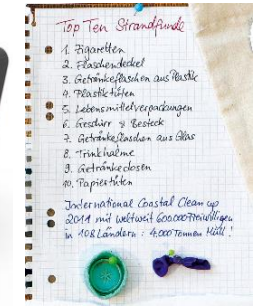 Top Ten Strandfunde
1. Zigaretten
2. Flaschendeckel
3. Getränkeflaschen aus Plastik
4. Plastiktüten
5. Lebensmittelverpackungen
6. Geschirr & Besteck
7. Getränkeflaschen aus Glas
8. Trinkhalme
9. Getränkedosen
10. Papiertüten
International Coastal Clean up
2011 mit weltweit 600000 Freiwilligen
in 108 Ländern : 4.000 Tonnen Müll !